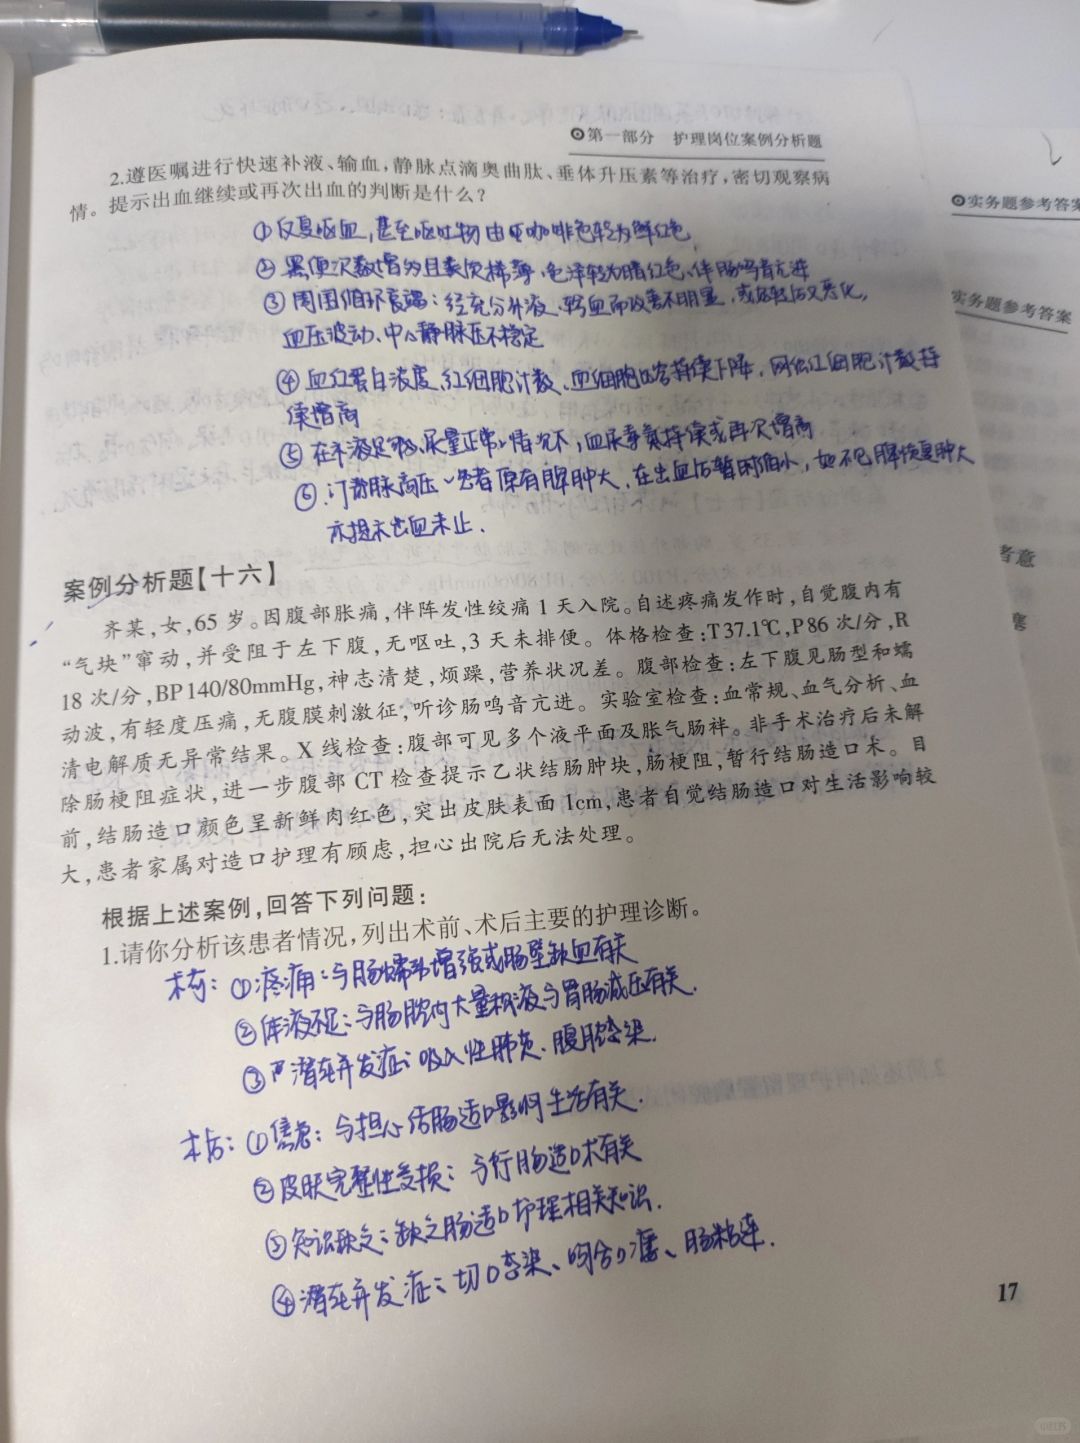 第一部分 护理岗位案例分析题
2.遵医嘱进行快速补液、输血,静脉点滴奥曲肽、垂体升压素等治疗,密切观察病
情。提示出血继续或再次出血的判断是什么?
①反复呕血,甚至呕吐物由咖啡色转为鲜红色
②黑便次数增多且粪质稀薄,色泽转为暗红色,伴肠鸣音亢进
③周围循环衰竭:经充分补液、输血而改善不明显,或好转后又恶化,
血压波动、中心静脉压不稳定
④血红蛋白浓度、红细胞计数、血细胞比容持续下降,网织红细胞计数持
续增高
⑤在补液足够、尿量正常情况下,血尿素氮持续或再次增高
⑥门静脉高压患者原有脾肿大,在出血后暂时缩小,如不见脾恢复肿大
亦提示出血未止.
案例分析题【十六】
齐某,女,65岁。因腹部胀痛,伴阵发性绞痛1天入院。自述疼痛发作时,自觉腹内有
“气块”窜动,并受阻于左下腹,无呕吐,3天未排便。体格检查:T37.1℃,P86次/分,R
18次/分,BP140/80mmHg,神志清楚,烦躁,营养状况差。腹部检查:左下腹见肠型和蠕
动波,有轻度压痛,无腹膜刺激征,听诊肠鸣音亢进。实验室检查:血常规、血气分析、血
清电解质无异常结果。X线检查:腹部可见多个液平面及胀气肠袢。非手术治疗后未解
除肠梗阻症状,进一步腹部CT检查提示乙状结肠肿块,肠梗阻,暂行结肠造口术。目
前,结肠造口颜色呈新鲜肉红色,突出皮肤表面1cm,患者自觉结肠造口对生活影响较
大,患者家属对造口护理有顾虑,担心出院后无法处理。
根据上述案例,回答下列问题:
1.请你分析该患者情况,列出术前、术后主要的护理诊断。
术前:①疼痛:与肠蠕动增强或肠壁缺血有关
②体液不足:与肠腔内大量积液与胃肠减压有关.
③潜在并发症:吸入性肺炎、腹腔感染.
术后:①焦虑:与担心结肠造口影响生活有关.
②皮肤完整性受损:与行肠造口术有关
③知识缺乏:缺乏肠造口护理相关知识.
④潜在并发症:切口感染、吻合口瘘、肠粘连.
17
实务题参考答案
实务题参考答案
者意